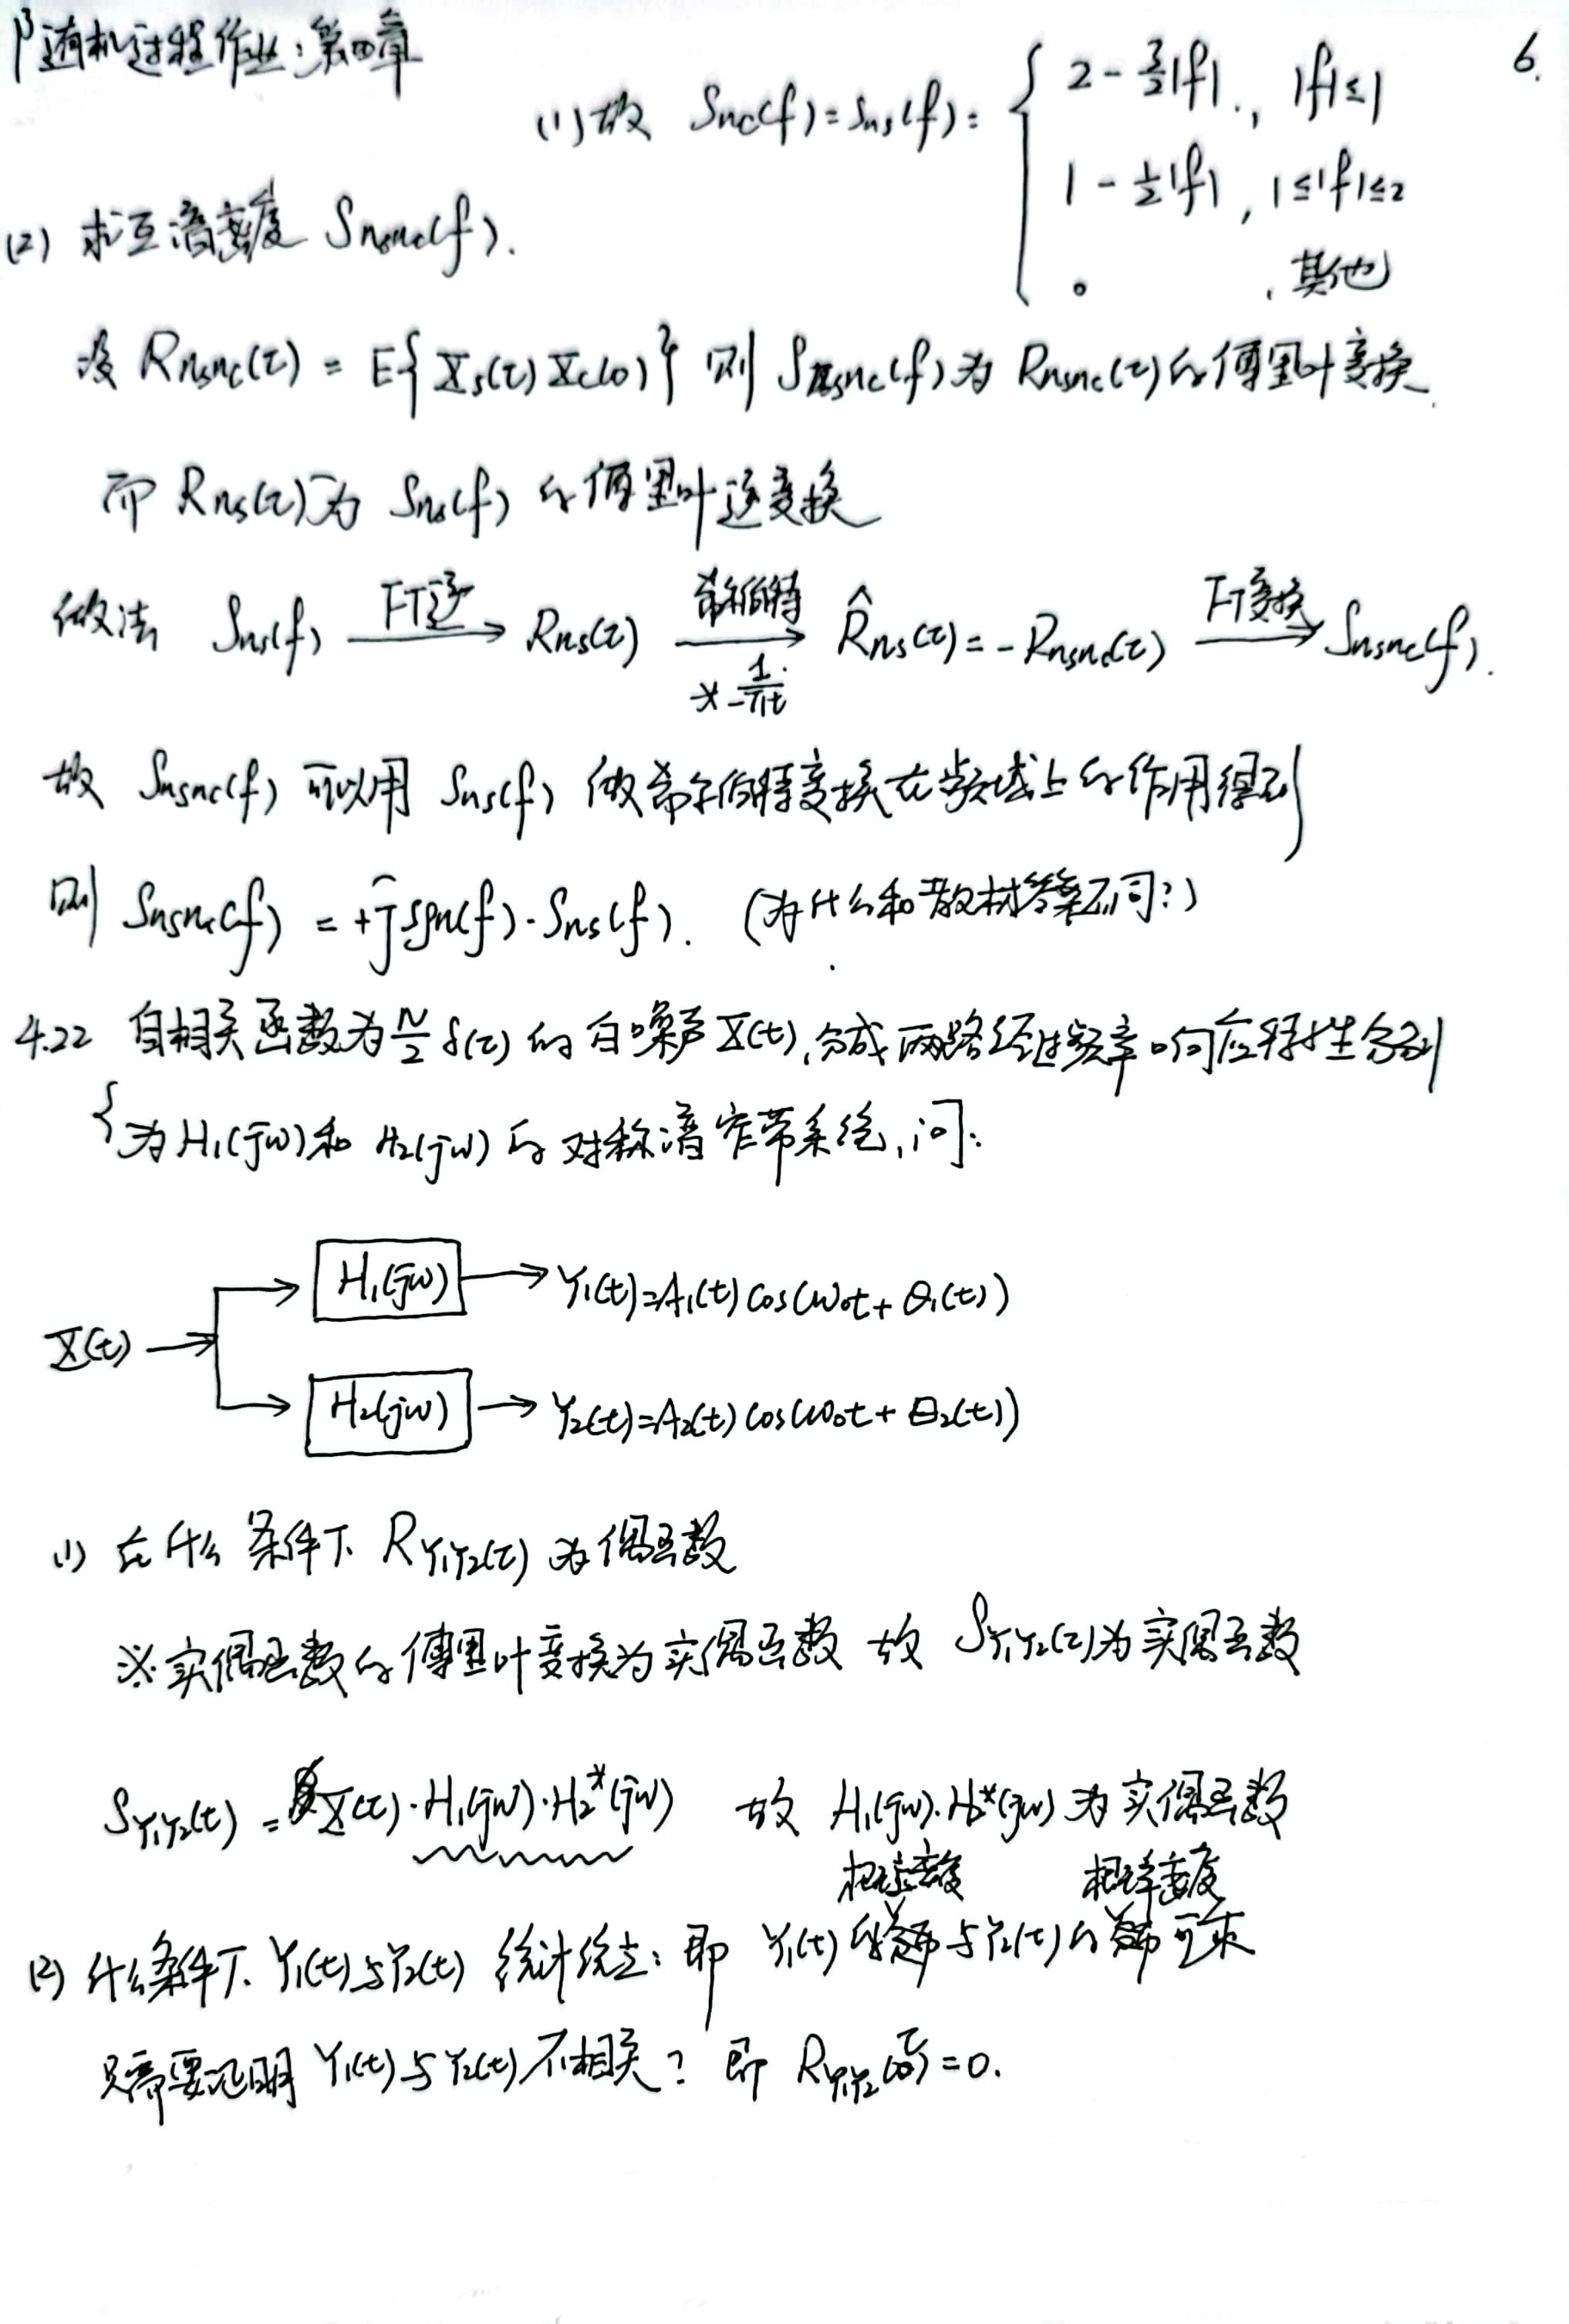 随机过程作业:第四章
6.
(1)故 Snc(f)=Sns(f)= { 2-3/2|f|., |f|≤1
1-1/2|f|, 1≤|f|≤2
0 , 其他
(2) 求互谱密度 Snsnc(f).
设 Rnsnc(τ) = E{X̲s(τ)X̲c(0)} 则 Snsnc(f)为 Rnsnc(τ)的傅里叶变换.
而 Rns(τ)为 Sns(f) 的傅里叶逆变换
做法 Sns(f) —FT逆→ Rns(τ) —希伯特 * 1/πt→ R̂ns(τ)=-Rnsnc(τ) —FT变换→ Snsnc(f).
故 Snsnc(f) 可以用 Sns(f) 做希尔伯特变换在频域上的作用得到
则 Snsnc(f) = +j sgn(f)·Sns(f). (为什么和教材答案不同?)
4.22 自相关函数为 N/2 δ(τ) 的白噪声X(t),分成两路经过频率响应特性分别
为H1(jw)和 H2(jw) 的对称谱窄带系统,问:
H1(jw) → Y1(t)=A1(t)cos(w0t+θ1(t))
X(t) →
H2(jw) → Y2(t)=A2(t)cos(w0t+θ2(t))
(1) 在什么条件下 RY1Y2(τ) 为偶函数
※实偶函数的傅里叶变换为实偶函数 故 SY1Y2(τ)为实偶函数
SY1Y2(t) = X(t)·H1(jw)·H2*(jw) 故 H1(jw)·H2*(jw) 为实偶函数
概率密度 概率密度
(2) 什么条件下 Y1(t)与Y2(t) 统计独立: 即 Y1(t) 的 与Y2(t)的 可求
只需要证明 Y1(t)与Y2(t)不相关? 即 RY1Y2(τ)=0.